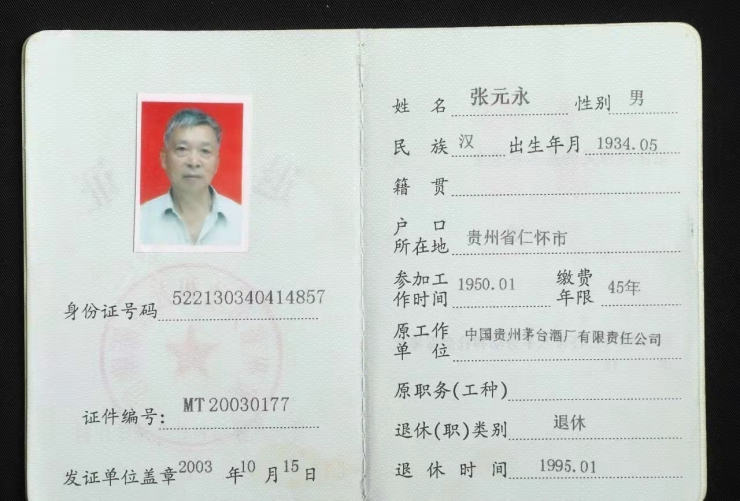 身份证号码 522130340414857
证件编号: MT 20030177
发证单位盖章 2003 年 10 月 15 日
姓名 张元永 性别 男
民族 汉 出生年月 1934.05
籍贯
户口所在地 贵州省仁怀市
参加工作时间 1950.01 缴费年限 45年
原工作单位 中国贵州茅台酒厂有限责任公司
原职务(工种)
退休(职)类别 退休
退休时间 1995.01